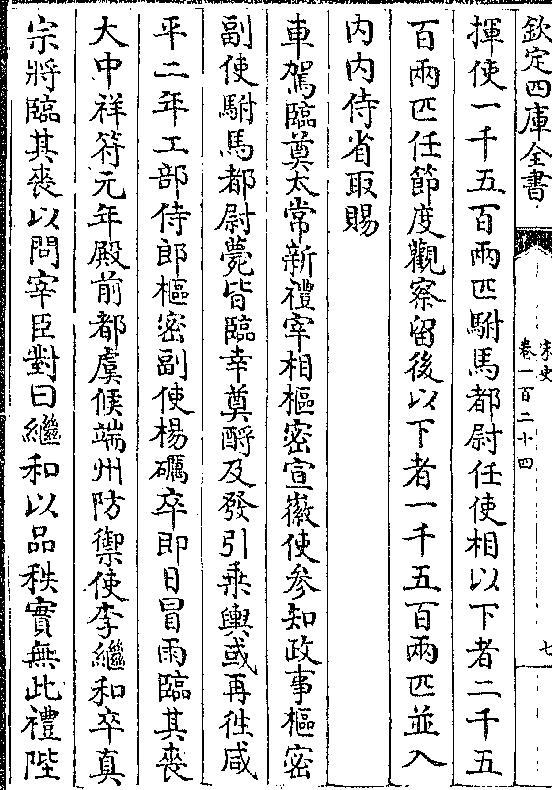 欽定四庫全書
宋史
卷一百二十四
七
揮使一千五百兩匹駙馬都尉任使相以下者二千五
百兩匹任節度觀察留後以下者一千五百兩匹並入
内内侍省取賜
車駕臨奠太常新禮宰相樞密宣徽使参知政事樞密
副使駙馬都尉薨皆臨幸奠酹及發引乗輿或再徃咸
平二年工部侍郎樞密副使楊礪卒即日冒雨臨其喪
大中祥符元年殿前都虞候端州防禦使李繼和卒真
宗將臨其喪以問宰臣對曰繼和以品秩實無此禮陛